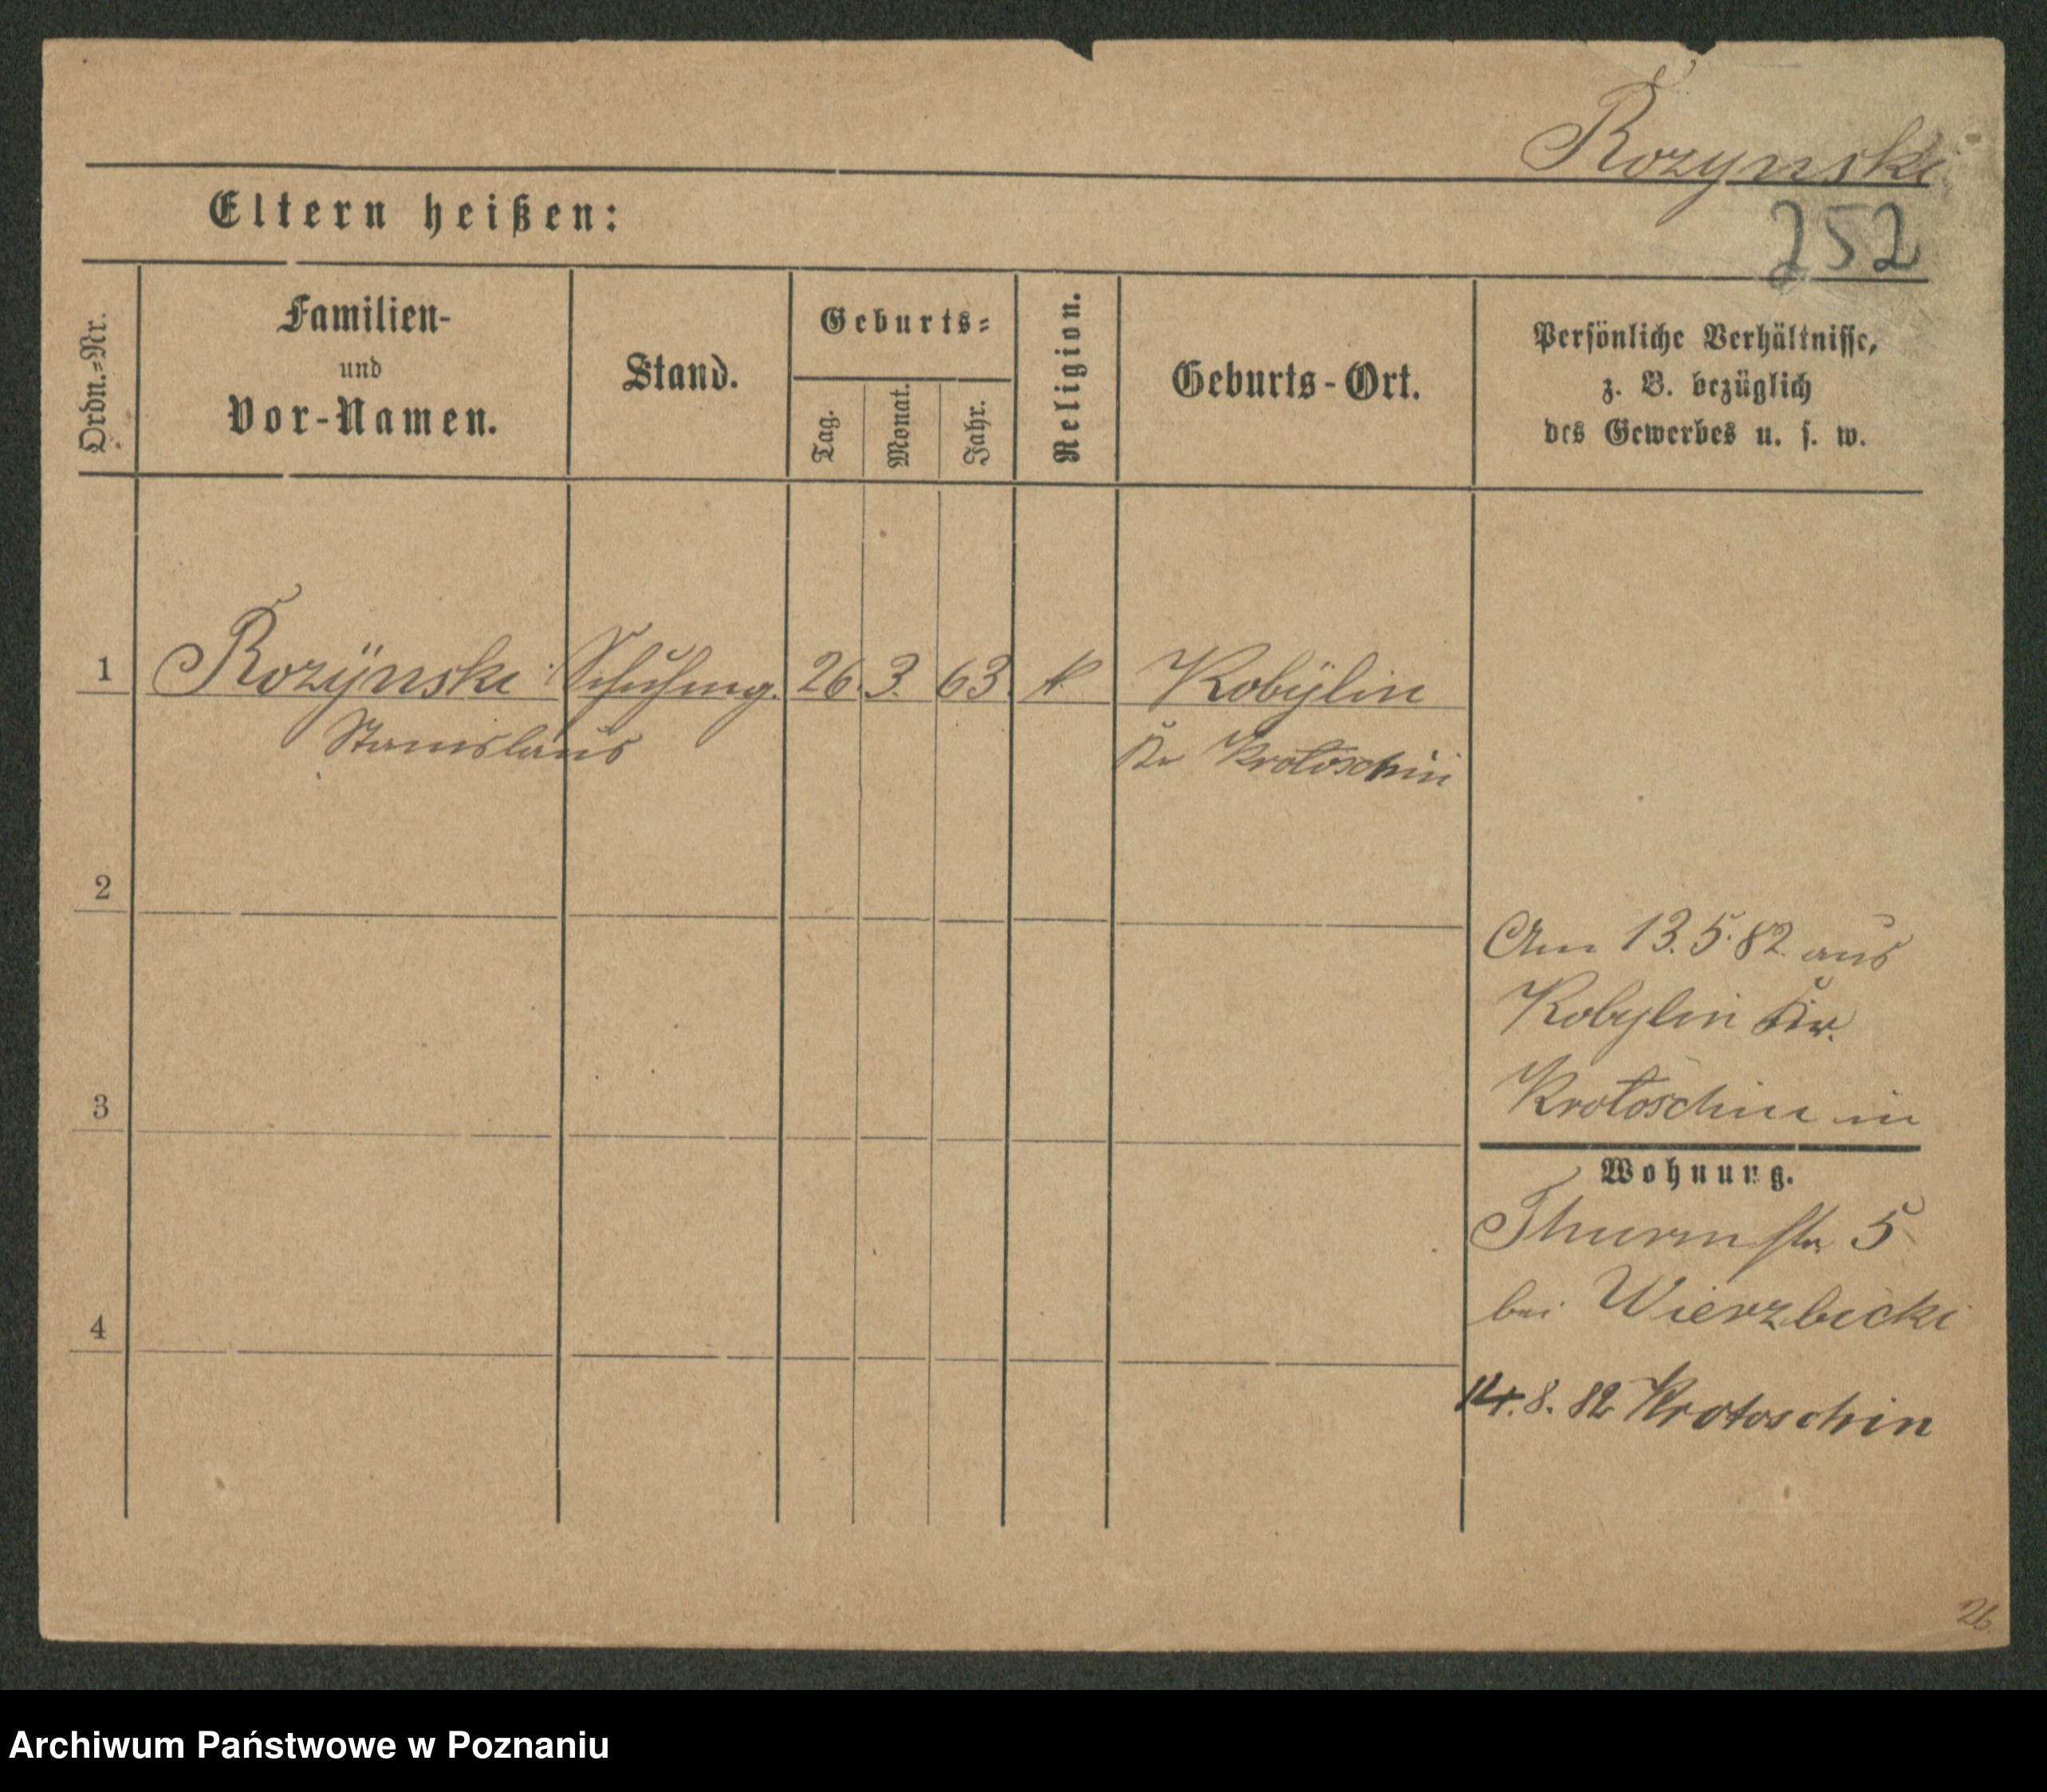 Rozynski
252
Eltern heißen:
Ordn.=Nr.
Familien-
und
Vor-Namen.
Stand.
Geburts=
Tag.
Monat.
Jahr.
Religion.
Geburts-Ort.
Persönliche Verhältnisse,
z. B. bezüglich
des Gewerbes u. s. w.
1 Rozÿnski Schuhmg. 26. 3. 63. k Kobÿlin
Stanislaus Kr Krotoschin
2
Am 13.5.82. aus
Kobylin Kr.
3
Krotoschin in
Wohnung.
Thurmstr 5
bei Wierzbicki
4
14.8.82 Krotoschin
26
Archiwum Państwowe w Poznaniu